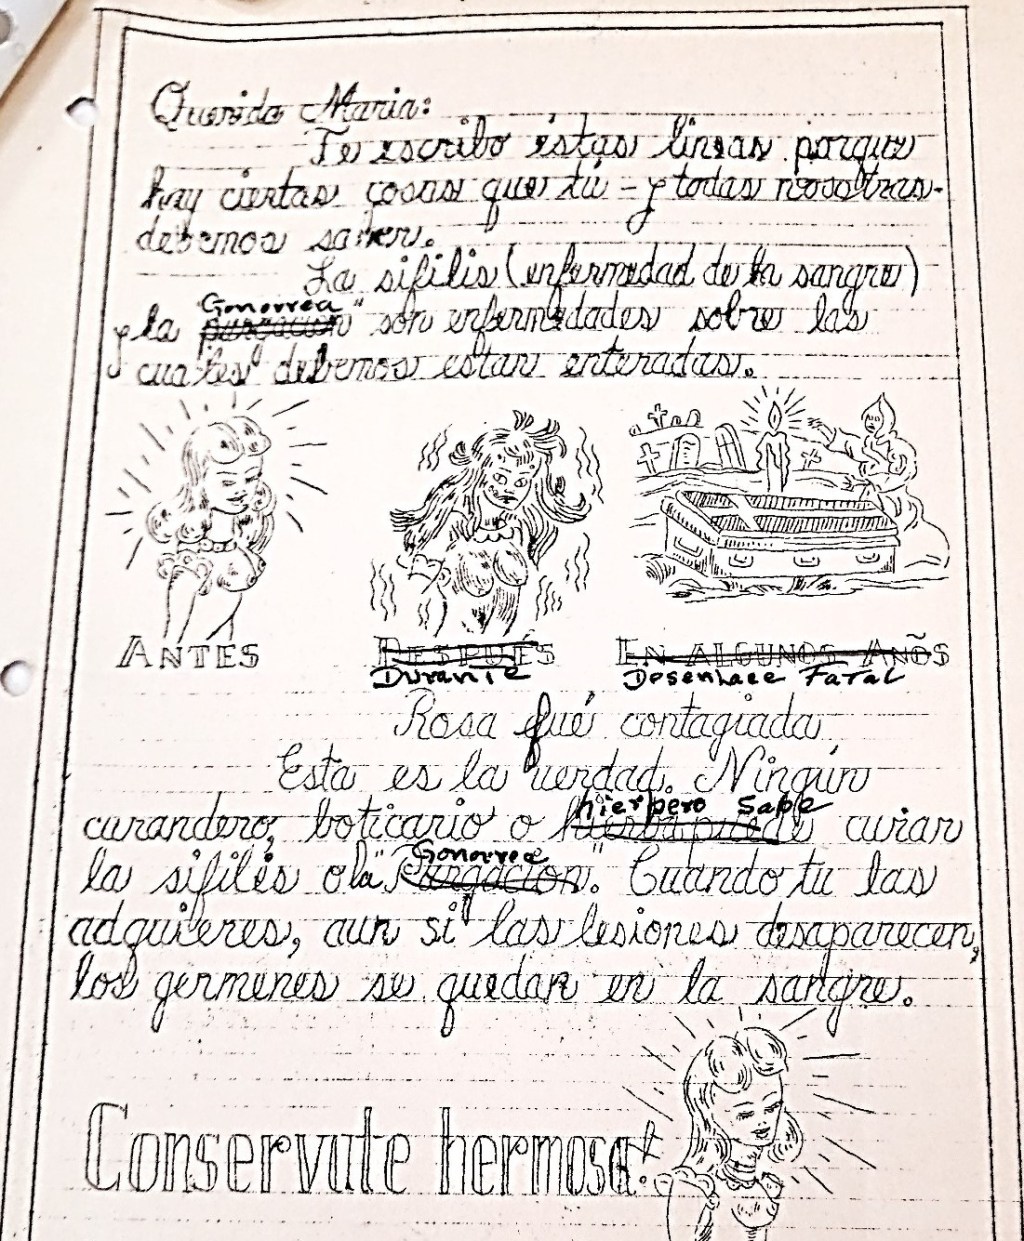 Querida Maria:
Te escribo éstas lineas porque
hay ciertas cosas que tú - y todas nosotras-
debemos saber.
La sifilis (enfermedad de la sangre)
Gonorrea
y la "purgación" son enfermedades sobre las
cuales debemos estar enteradas.
ANTES
DESPUÉS
EN ALGUNOS AÑOS
Durante
Desenlace Fatal
Rosa fué contagiada
Esta es la verdad. Ningún
hierbero sabe
curandero, boticario o curar
Gonorrea
la sifilis o la "Purgación". Cuando tu las
adquieres, aun si las lesiones desaparecen,
los germenes se quedan en la sangre.
Conservate hermosa!